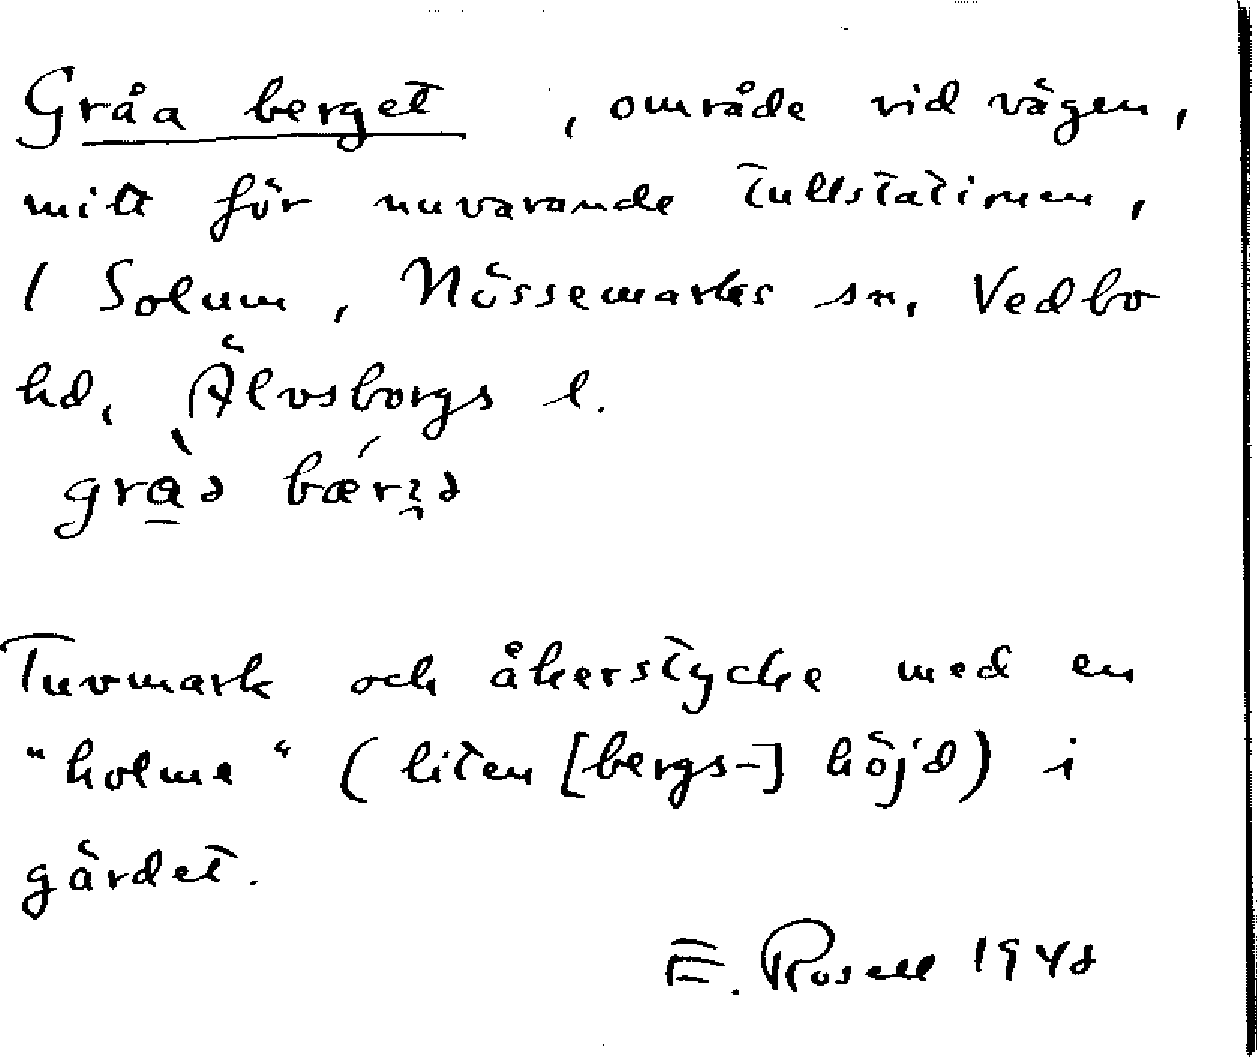 Gråa berget , område vid vägen,
mitt för nuvarande tullstationen,
/ Solum, Nössemarks sn, Vedbo
hd, Älvsborgs l.
Tuvmark och åkerstycke med en
"holme" (liten [bergs-] höjd) i
gärdet.
E. Rosell 1948